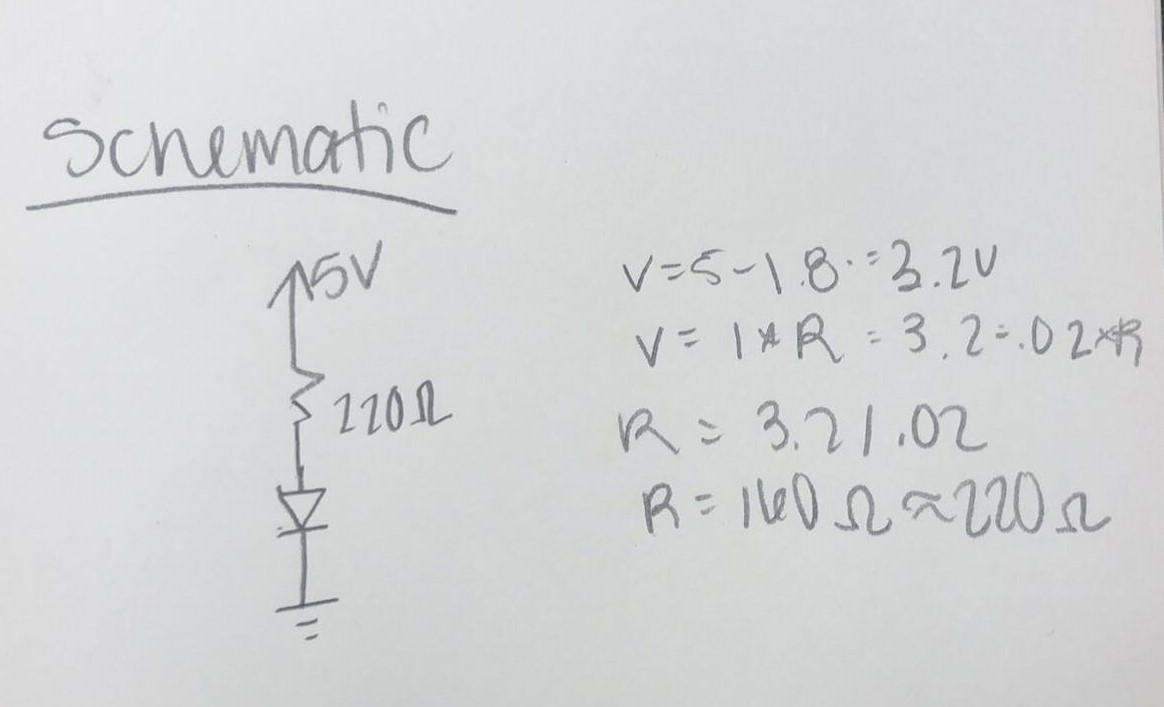 Schematic
5V
220Ω
V=5-1.8.=3.2V
V= I*R = 3.2=.02*R
R = 3.2/.02
R= 160Ω ≈220Ω